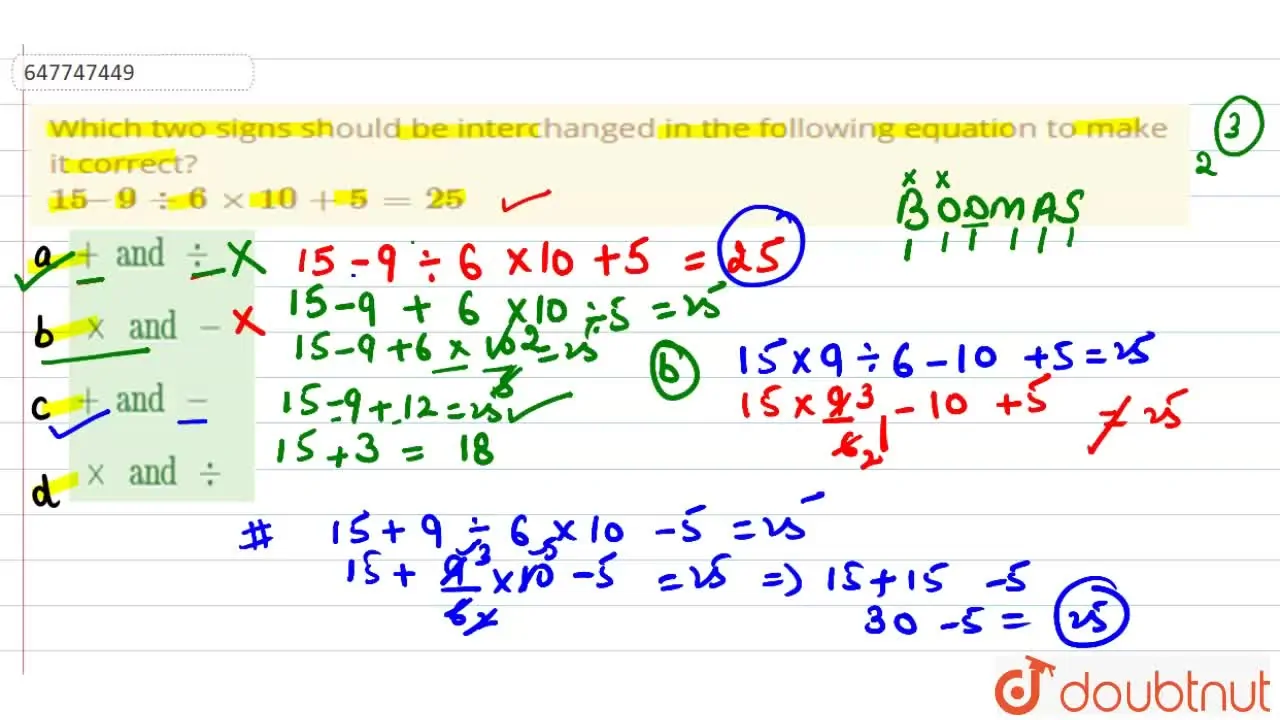 647747449
Which two signs should be interchanged in the following equation to make
it correct?
15 − 9 ÷ 6 × 10 + 5 = 25
3
2
× ×
BODMAS
a + and ÷ ×
b × and − ×
c + and −
d × and ÷
15 − 9 ÷ 6 × 10 + 5 = 25
15 − 9 + 6 × 10 ÷ 5 = 25
15 − 9 + 6 × 10 2 = 25
5
15 − 9 + 12 = 25
15 + 3 = 18
b
15 × 9 ÷ 6 − 10 + 5 = 25
15 × 9 3 − 10 + 5 ≠ 25
6 2
# 15 + 9 ÷ 6 × 10 − 5 = 25
15 + 9 3 × 10 5 − 5 = 25 ⇒ 15 + 15 − 5
6 2
30 − 5 = 25
doubtnut